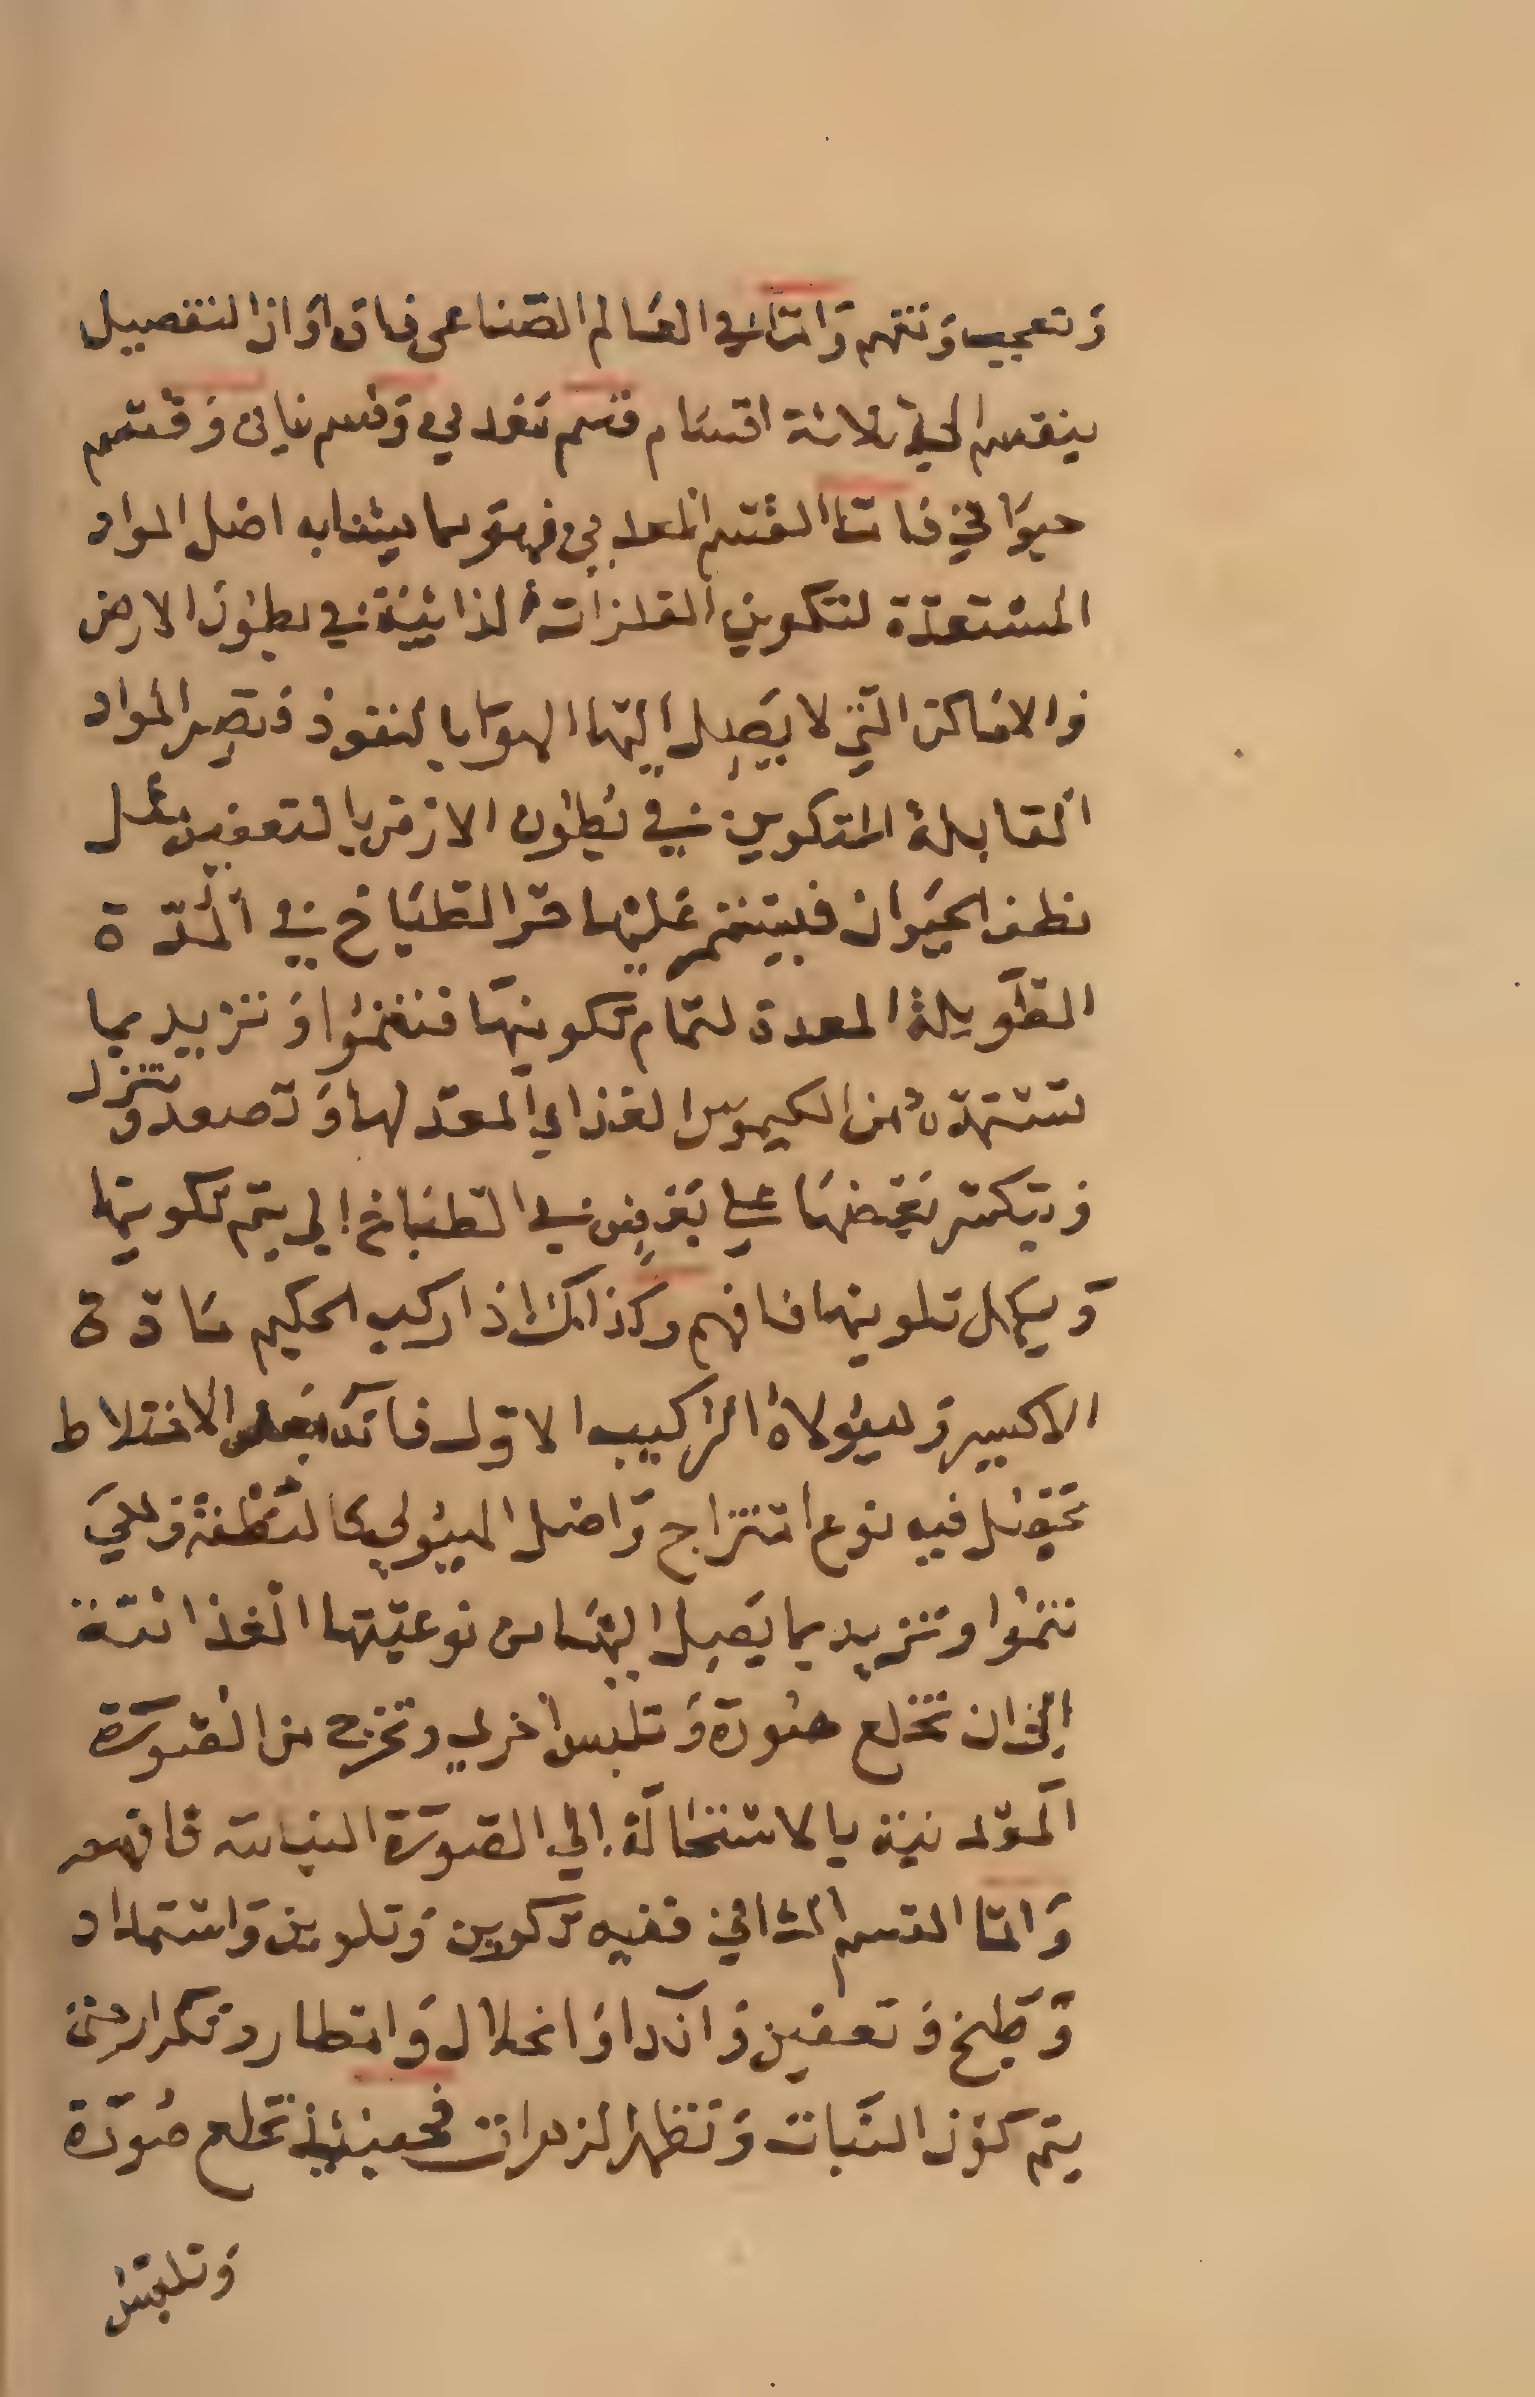 وتعجب وتفهم وامّا في العالم الصّناعى فان اوان التفصيل
ينقسم الي ثلاثة اقسَام قسم مَعدني وقسم نباتى وَقسم
حيوَاني فامّا القسم المعدني فهوَ ما يشابه اصْل المواد
المسْتعدّة لتكوين الفلزات الذائبة في بطون الارض
والامَاكن التي لا يَصِل اليها الهوَا بالنفوذ وَتصِير المواد
القابلة للتكوين في بُطون الارض بالتعفين مثل
نطف الحيَوان فيستمر عَليْها حر الطبَاخ في المدّة
الطَويلة المعدة لتمَام تكوينهَا فتنموا وَتزيد بما
تستمدّهُ من الكيموس الغذاي المعدّ لها وَتصعد وتنزل
وَيتكثر بَعْضهَا علي بَعْض في الطبَاخ الي يتم تكوينها
وَيكمل تلوينها فافهم وكذالك اذا ركب الحكيم مَادة
الاكسير وَهيولاهُ التركيب الاوّل فانه بَعد الاختلاط
يحصل فيه نوع امتزاج وَاصْل الهيولي كالنطْفة وَهيَ
تنموا وتزيد بما يَصِل اليهَا من نوعيّتها الغذائية
الى ان تخلع صُورة وَتلبس اخري وتخرج من الصّورَة
المعْدنية بالاسْتحَالة الي الصّورَة النباتية فافهم
وَامّا القسم الثاني ففيه تركوين وَتلوين وَاستمداد
وَطبخ وَتعفين وَاندا وَانحلال وَامطار وتكرار حتى
يتم كوْن النّبات وَتظهر الزهرات فحينئيذ تخلع صُورَة
وَتلبسُ